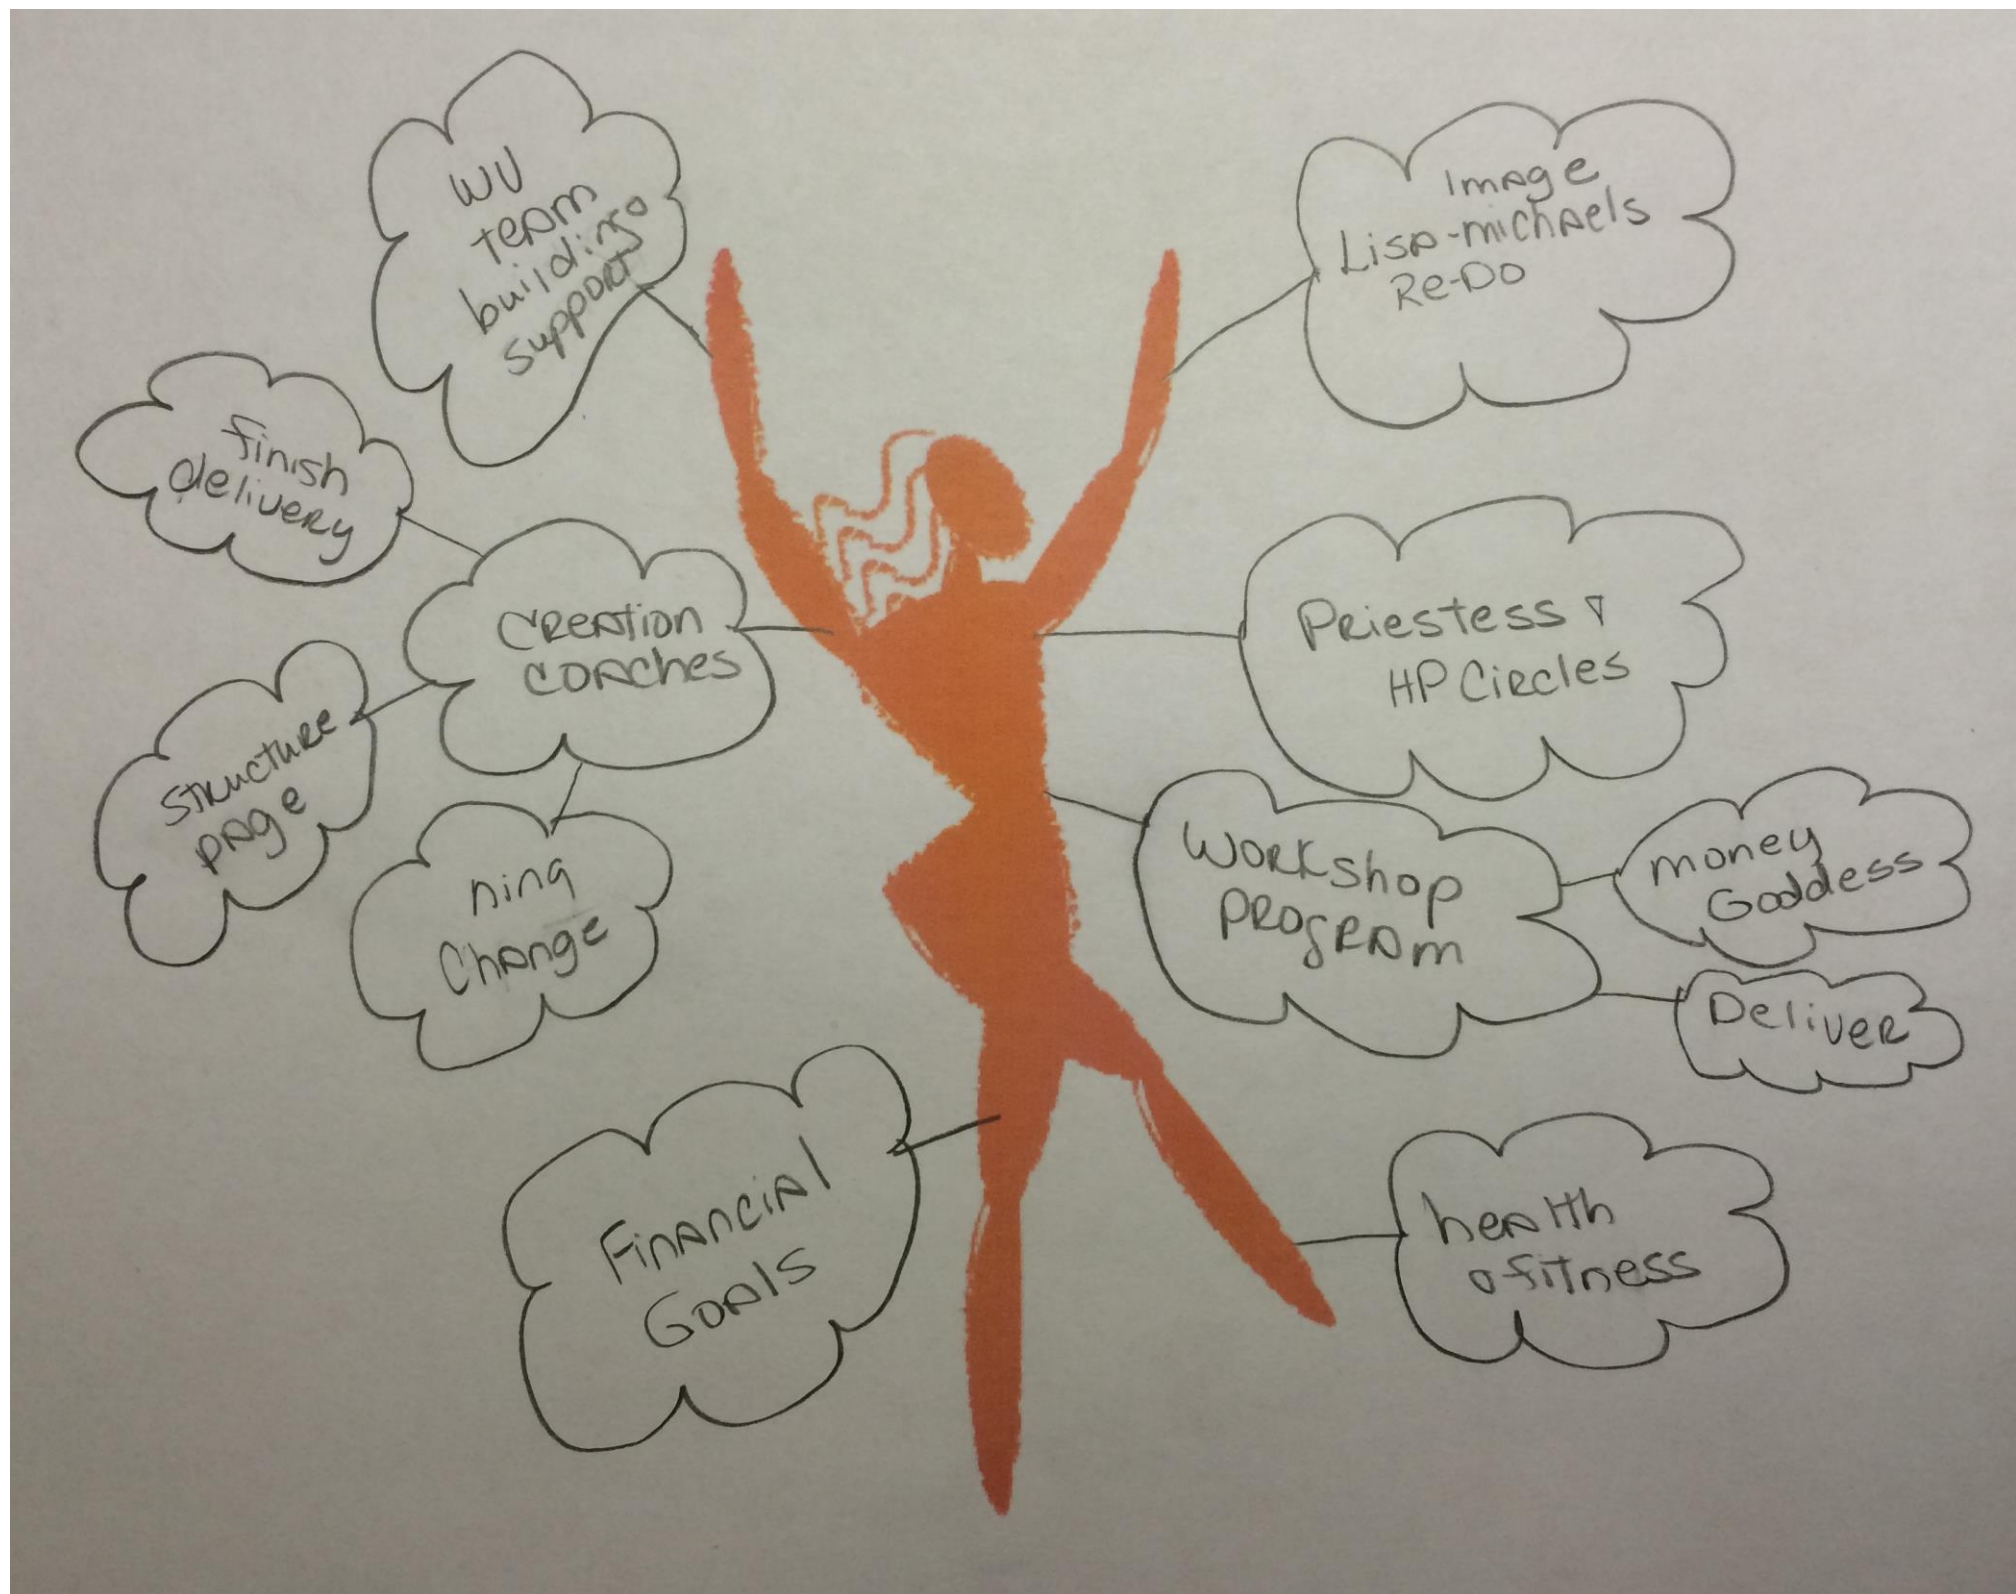 WU
team
building &
support
Image
Lisa-michaels
Re-Do
finish
delivery
Creation
coaches
Priestess &
HP Circles
structure
page
ning
Change
Workshop
Program
money
Goddess
Deliver
Financial
Goals
health
& fitness